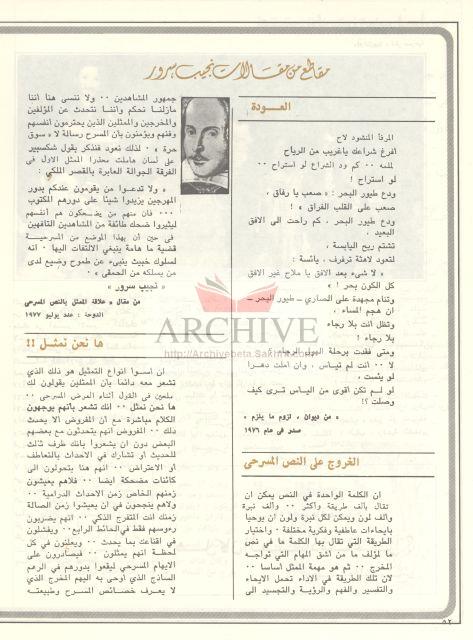 مقاطع من مقالات نجيب سرور
العودة
المرفأ المنشود لاح
افرغ شراعك ياغريب من الرياح
لملمه ٠٠ كم ود الشراع لو استراح ٠٠
لو استراح !
ودع طيور البحر : « صعب يا رفاق ،
صعب على القلب الفراق » !
ودع طيور البحر ٠ كم راحت الى الافق
البعيد ٠
تشتم ريح اليابسة ،
لتعود لاهثة ترفرف ، يائسة :
« لا شيء بعد الافق يا ملاح غير الافق
كل الكون بحر ! »
وتنام مجهدة على الصاري ــ طيور البحر ــ
ان هجم المساء ،
وتظل انت بلا رجاء
بلا رجاء !
ومتى فقدت برحلة الهول الرجاء ؟
لا ٠٠ انت لم تيأس ، وان املت دهرا
لو يئست ،
لو لم تكن أقوى من اليأس ترى كيف
وصلت ؟!
« من ديوان ، لزوم ما يلزم »
صدر في عام ١٩٧٦
الخروج على النص المسرحي
ان الكلمة الواحدة في النص يمكن ان
تقال بألف طريقة وأكثر ٠٠ وألف نبرة
وألف لون ويمكن لكل نبرة ولون ان يوحيا
بايحاءات عاطفية وفكرية مختلفة ٠ واختيار
الطريقة التي تقال بها الكلمة ما في نص
ما لمؤلف ما من اشق المهام التي تواجه
المخرج ٠٠ ثم هو مهمة الممثل اساسا ٠٠
لان تلك الطريقة في الاداء تحمل الايحاء
والتفسير والفهم والرؤية والتجسيد الى
جمهور المشاهدين ٠٠ ولا ننسى هنا اننا
مازلنا نحكم واننا نتحدث عن المؤلفين
والمخرجين والممثلين الذين يحترمون انفسهم
وفنهم ويؤمنون بأن المسرح رسالة لا « سوق
حرة » ٠ لذلك نعود فنذكر بقول شكسبير
على لسان هاملت محذرا الممثل الاول في
الفرقة الجوالة العابرة بالقصر الملكي :
« ولا تدعوا من يقومون عندكم بدور
المهرجين يزيدوا شيئا على دورهم المكتوب
٠٠٠ فان منهم من يضحكون هم أنفسهم
ليثيروا ضحك طائفة من المشاهدين التافهين
في حين أن بهذا الموضع من المسرحية
قضية ما هامة ينبغي الالتفات اليها ٠ انه
لسلوك خبيث ينبىء عن طموح وضيع لدى
من يسلكه من الحمقى » ٠
« نجيب سرور »
من مقال « علاقة الممثل بالنص المسرحي
الدوحة : عدد يوليو ١٩٧٧
ها نحن نمثل !!
ان أسوأ انواع التمثيل هو ذلك الذي
تشعر معه دائما بأن الممثلين يقولون لك
ملمحين في القول أثناء العرض المسرحي ٠٠
ها نحن نمثل ٠٠ انك تشعر بأنهم يوجهون
الكلام مباشرة مع ان المفروض الا يحدث
ذلك ٠٠ المفروض انهم يتحدثون مع بعضهم
البعض دون أن يشعروا بانك طرف ثالث
للحديث أو تشارك في الاحداث بالتعاطف
أو الاعتراض ٠٠ انهم هنا يتحولون الى
كائنات مضحكة ايضا ٠٠ فلاهم يعيشون
زمنهم الخاص زمن الاحداث الدرامية ٠٠
ولاهم ينجحون في ان يعيشوا زمن الصالة
زمنك أنت المتفرج الذكي ٠٠ انهم يضربون
رءوسهم فقط في الحائط الرابع ٠٠ ويفشلون
في اقناعك بما يحدث ٠٠ ويعلنون في كل
لحظة انهم يمثلون ٠٠ فيصادرون على
الايهام المسرحي ليقعوا بدورهم في الوهم
الساذج الذي أوحى به اليهم المخرج الذي
لا يعرف خصائص المسرح وطبيعته
ARCHIVE
http://Archivebeta.Sakhrit.com